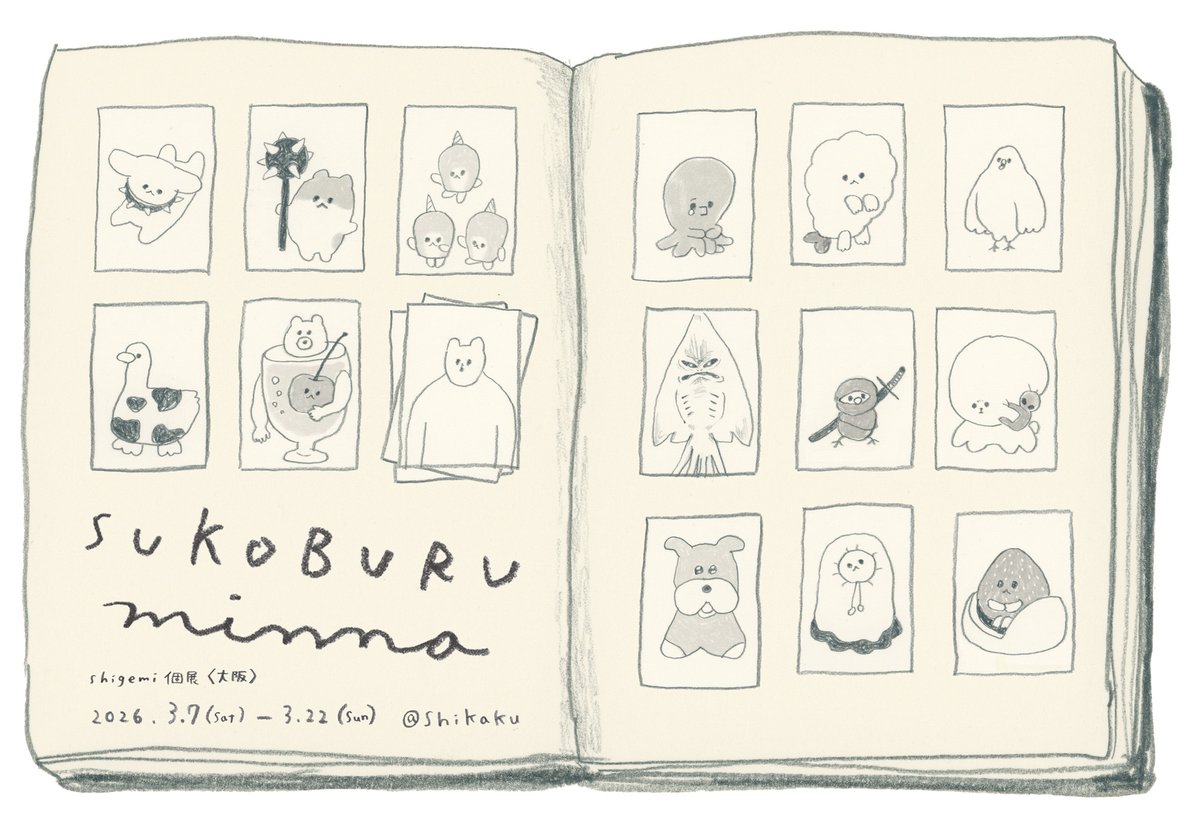 SUKOBURU
minna
shigemi 個展〈大阪〉
2026. 3.7(Sat) — 3.22(Sun) @Shikaku